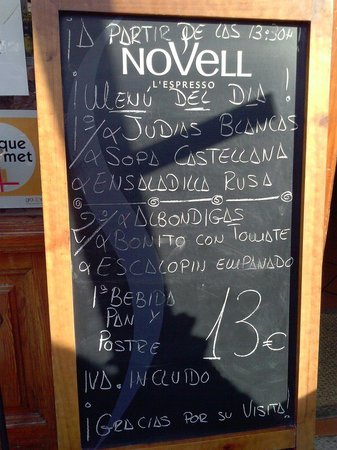 ¡A PARTIR DE LAS 13:30H
NOVELL
L'ESPRESSO
¡MENÚ DEL DIA!
JUDIAS BLANCAS
SOPA CASTELLANA
ENSALADILLA RUSA
ALBONDIGAS
BONITO CON TOMATE
ESCALOPIN EMPANADO
1ª BEBIDA
PAN Y
POSTRE
13€
IVA. INCLUIDO
¡GRACIAS POR SU VISITA!
que
met